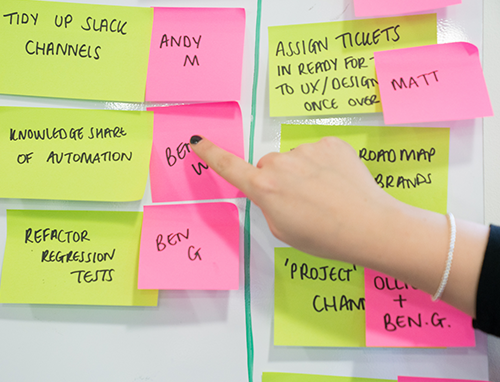 TIDY UP SLACK
CHANNELS
ANDY
M
KNOWLEDGE SHARE
OF AUTOMATION
W
REFACTOR
REGRESSION
TESTS
BEN
G
ASSIGN TICKETS
IN READY FOR-
TO UX/DESIGN
ONCE OVER
MATT
ROADMAP
BRANDS
'PROJECT'
+
BEN.G.